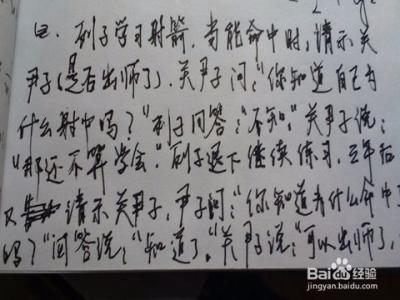 三. 列子学习射箭. 当能命中时, 请示关
尹子(是否出师了). 关尹子问:"你知道自己为
什么射中吗?"列子回答:"不知。"关尹子说:
"那还不算学会."列子退下继续练习. 三年后
又请示关尹子, 尹子问:"你知道为什么命中了
吗?"回答说:"知道了."关尹子说:"可以出师了,
Baidu 百度经验
jingyan.baidu.com